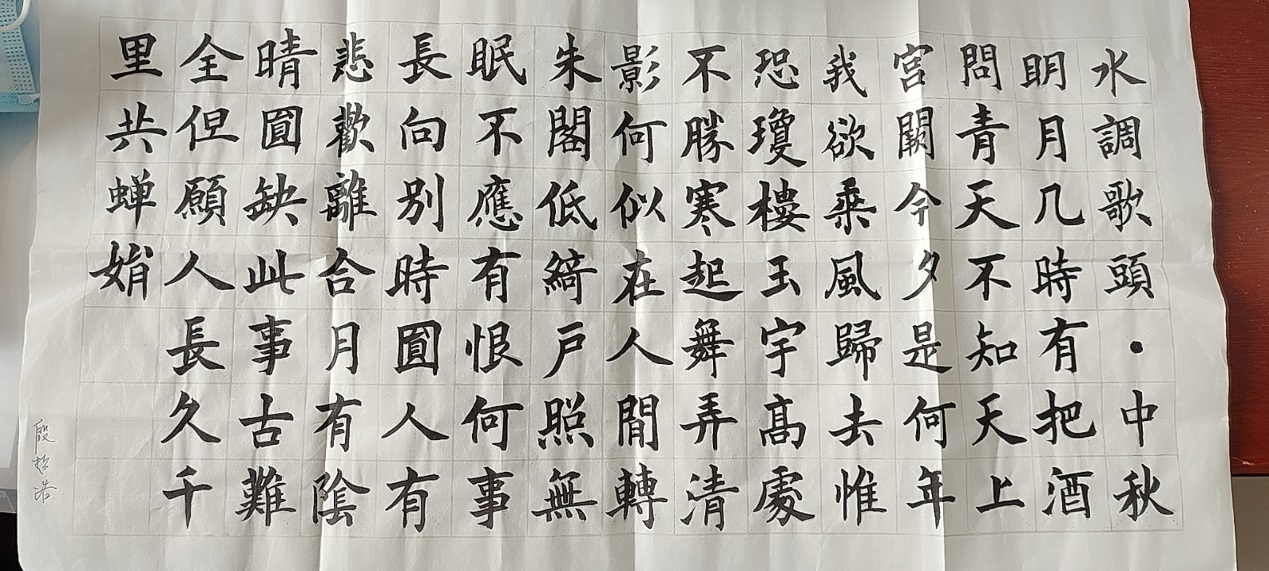 水調歌頭·中秋
明月几時有把酒
問青天不知天上
宮闕今夕是何年
我欲乘風歸去惟
恐瓊樓玉宇高處
不勝寒起舞弄清
影何似在人間轉
朱閣低綺戶照無
眠不應有恨何事
長向別時圓人有
悲歡離合月有陰
晴圓缺此事古難
全但願人長久千
里共蝉娟
殷浩